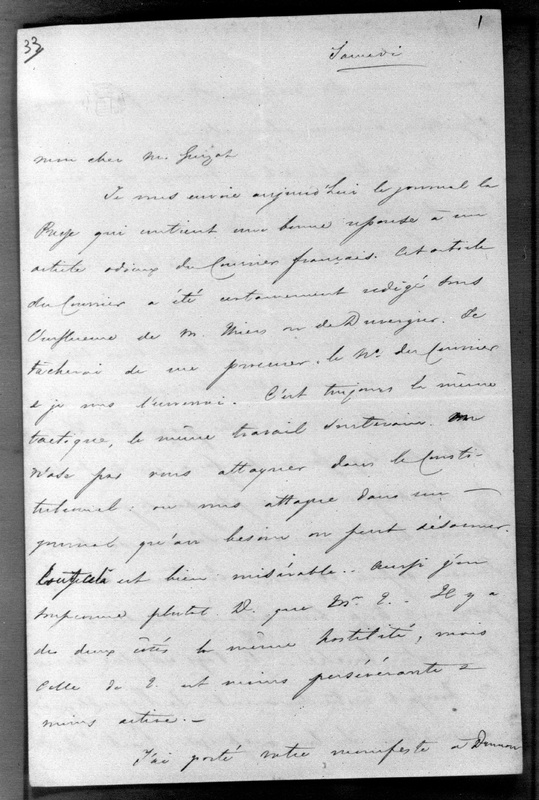 33
1
Samedi
mon cher M. Guizot
Je vous envoie aujourd'hui le journal la
Presse qui contient une bonne réponse à un
article odieux du Courrier français. Cet article
du Courrier a été certainement rédigé sous
l'influence de M. Thiers ou de Duvergier. Je
tacherai de me procurer le No. du Courrier
& je vous l'enverrai. C'est toujours la même
tactique, le même travail souterrain. on
n'ose pas vous attaquer dans le Consti-
tutionnel: on vous attaque dans un
journal qu'au besoin on peut désavouer.
tout cela est bien misérable. aussi j'en
soupconne plutot D. que Mr. T. Il y a
des deux côtés la même hostilité, mais
celle de T. est moins persévérante &
moins active.
J'ai porté votre manifeste à